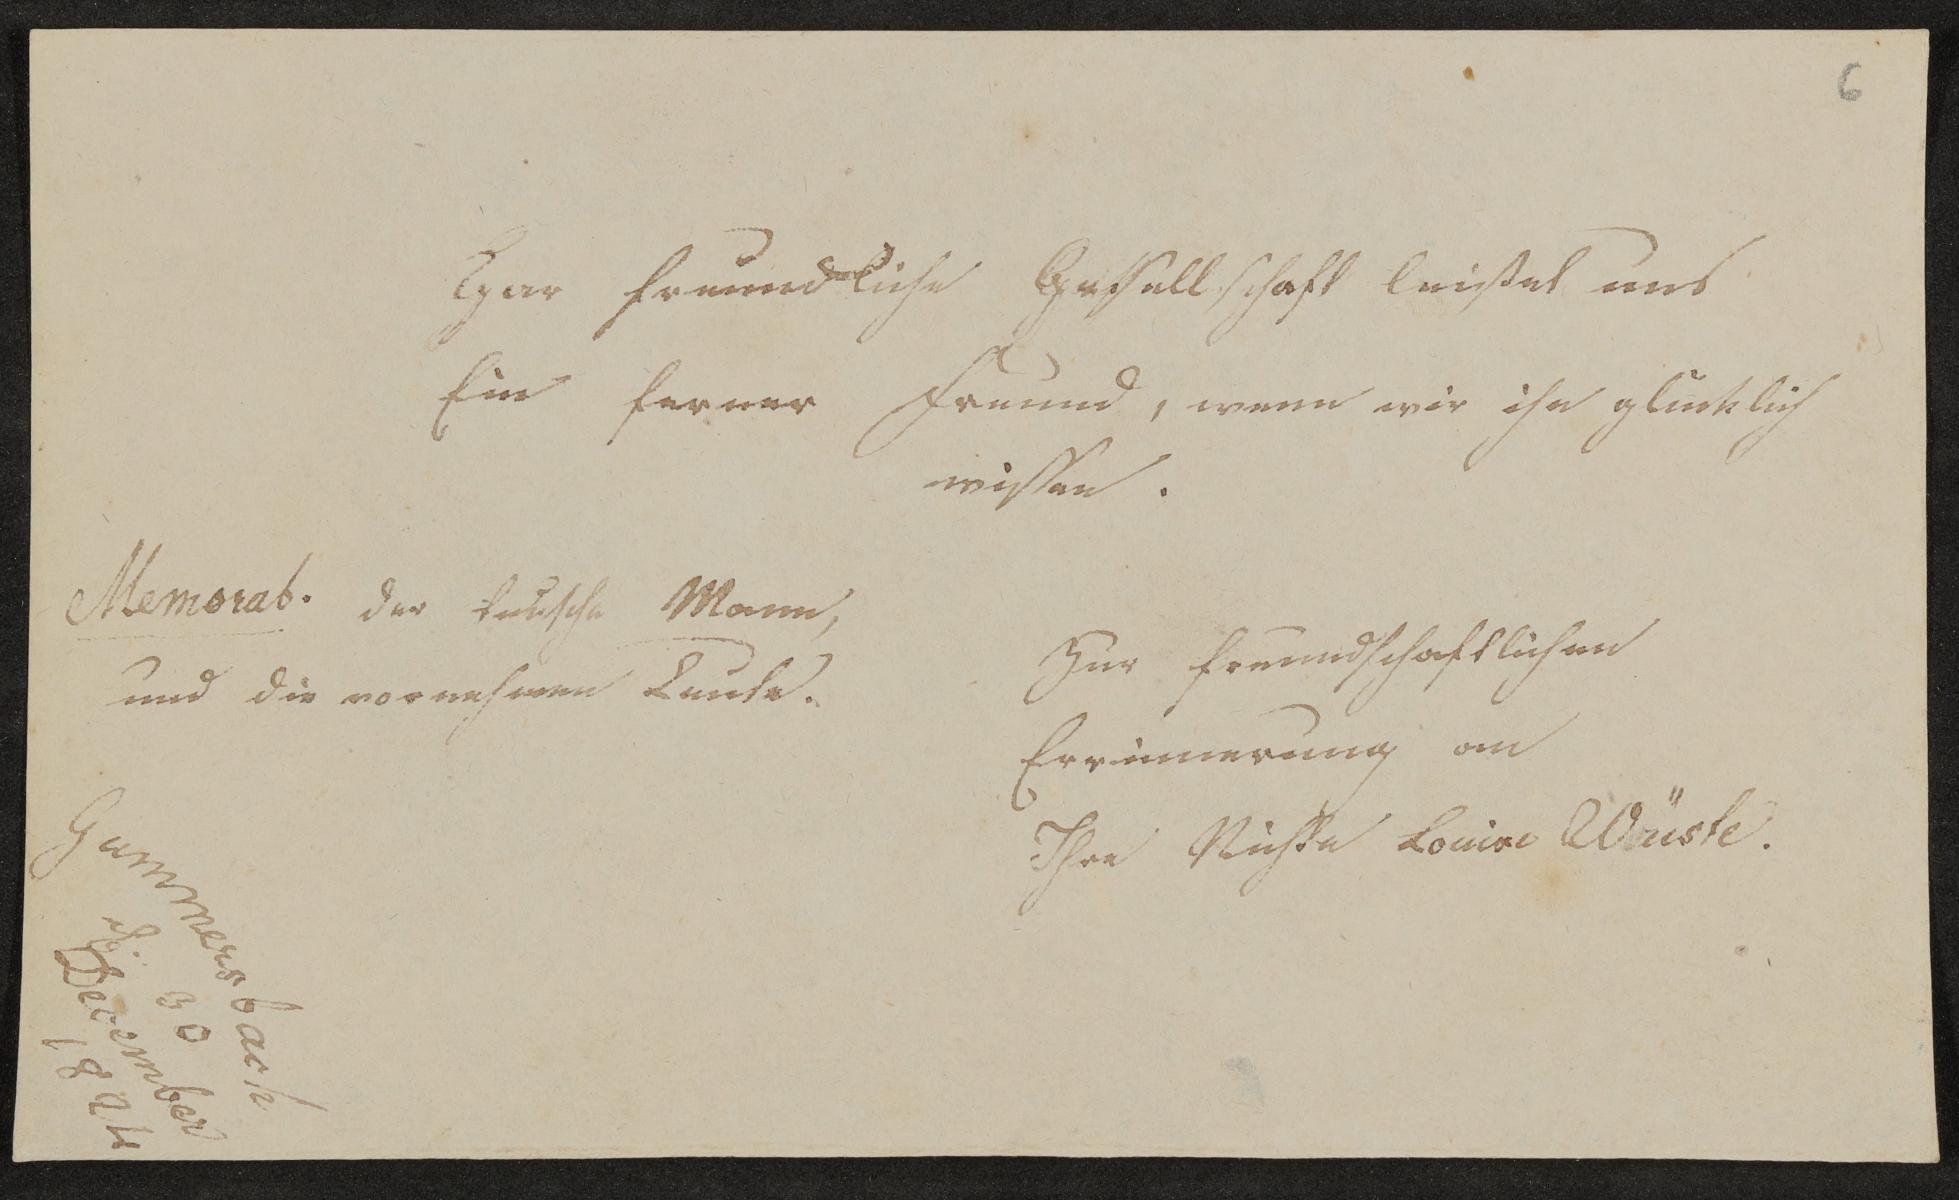 6
Gar freundliche Gesellschaft leistet uns
Ein ferner Freund, wenn wir ihn glücklich
wissen.
Memorab. der teutsche Mann,
und die vornehmen Leute.
Zur freundschaftlichen
Errinnerung an
Ihre Nichte Louise Wüste.
Gummersbach
d. 30
December
1824